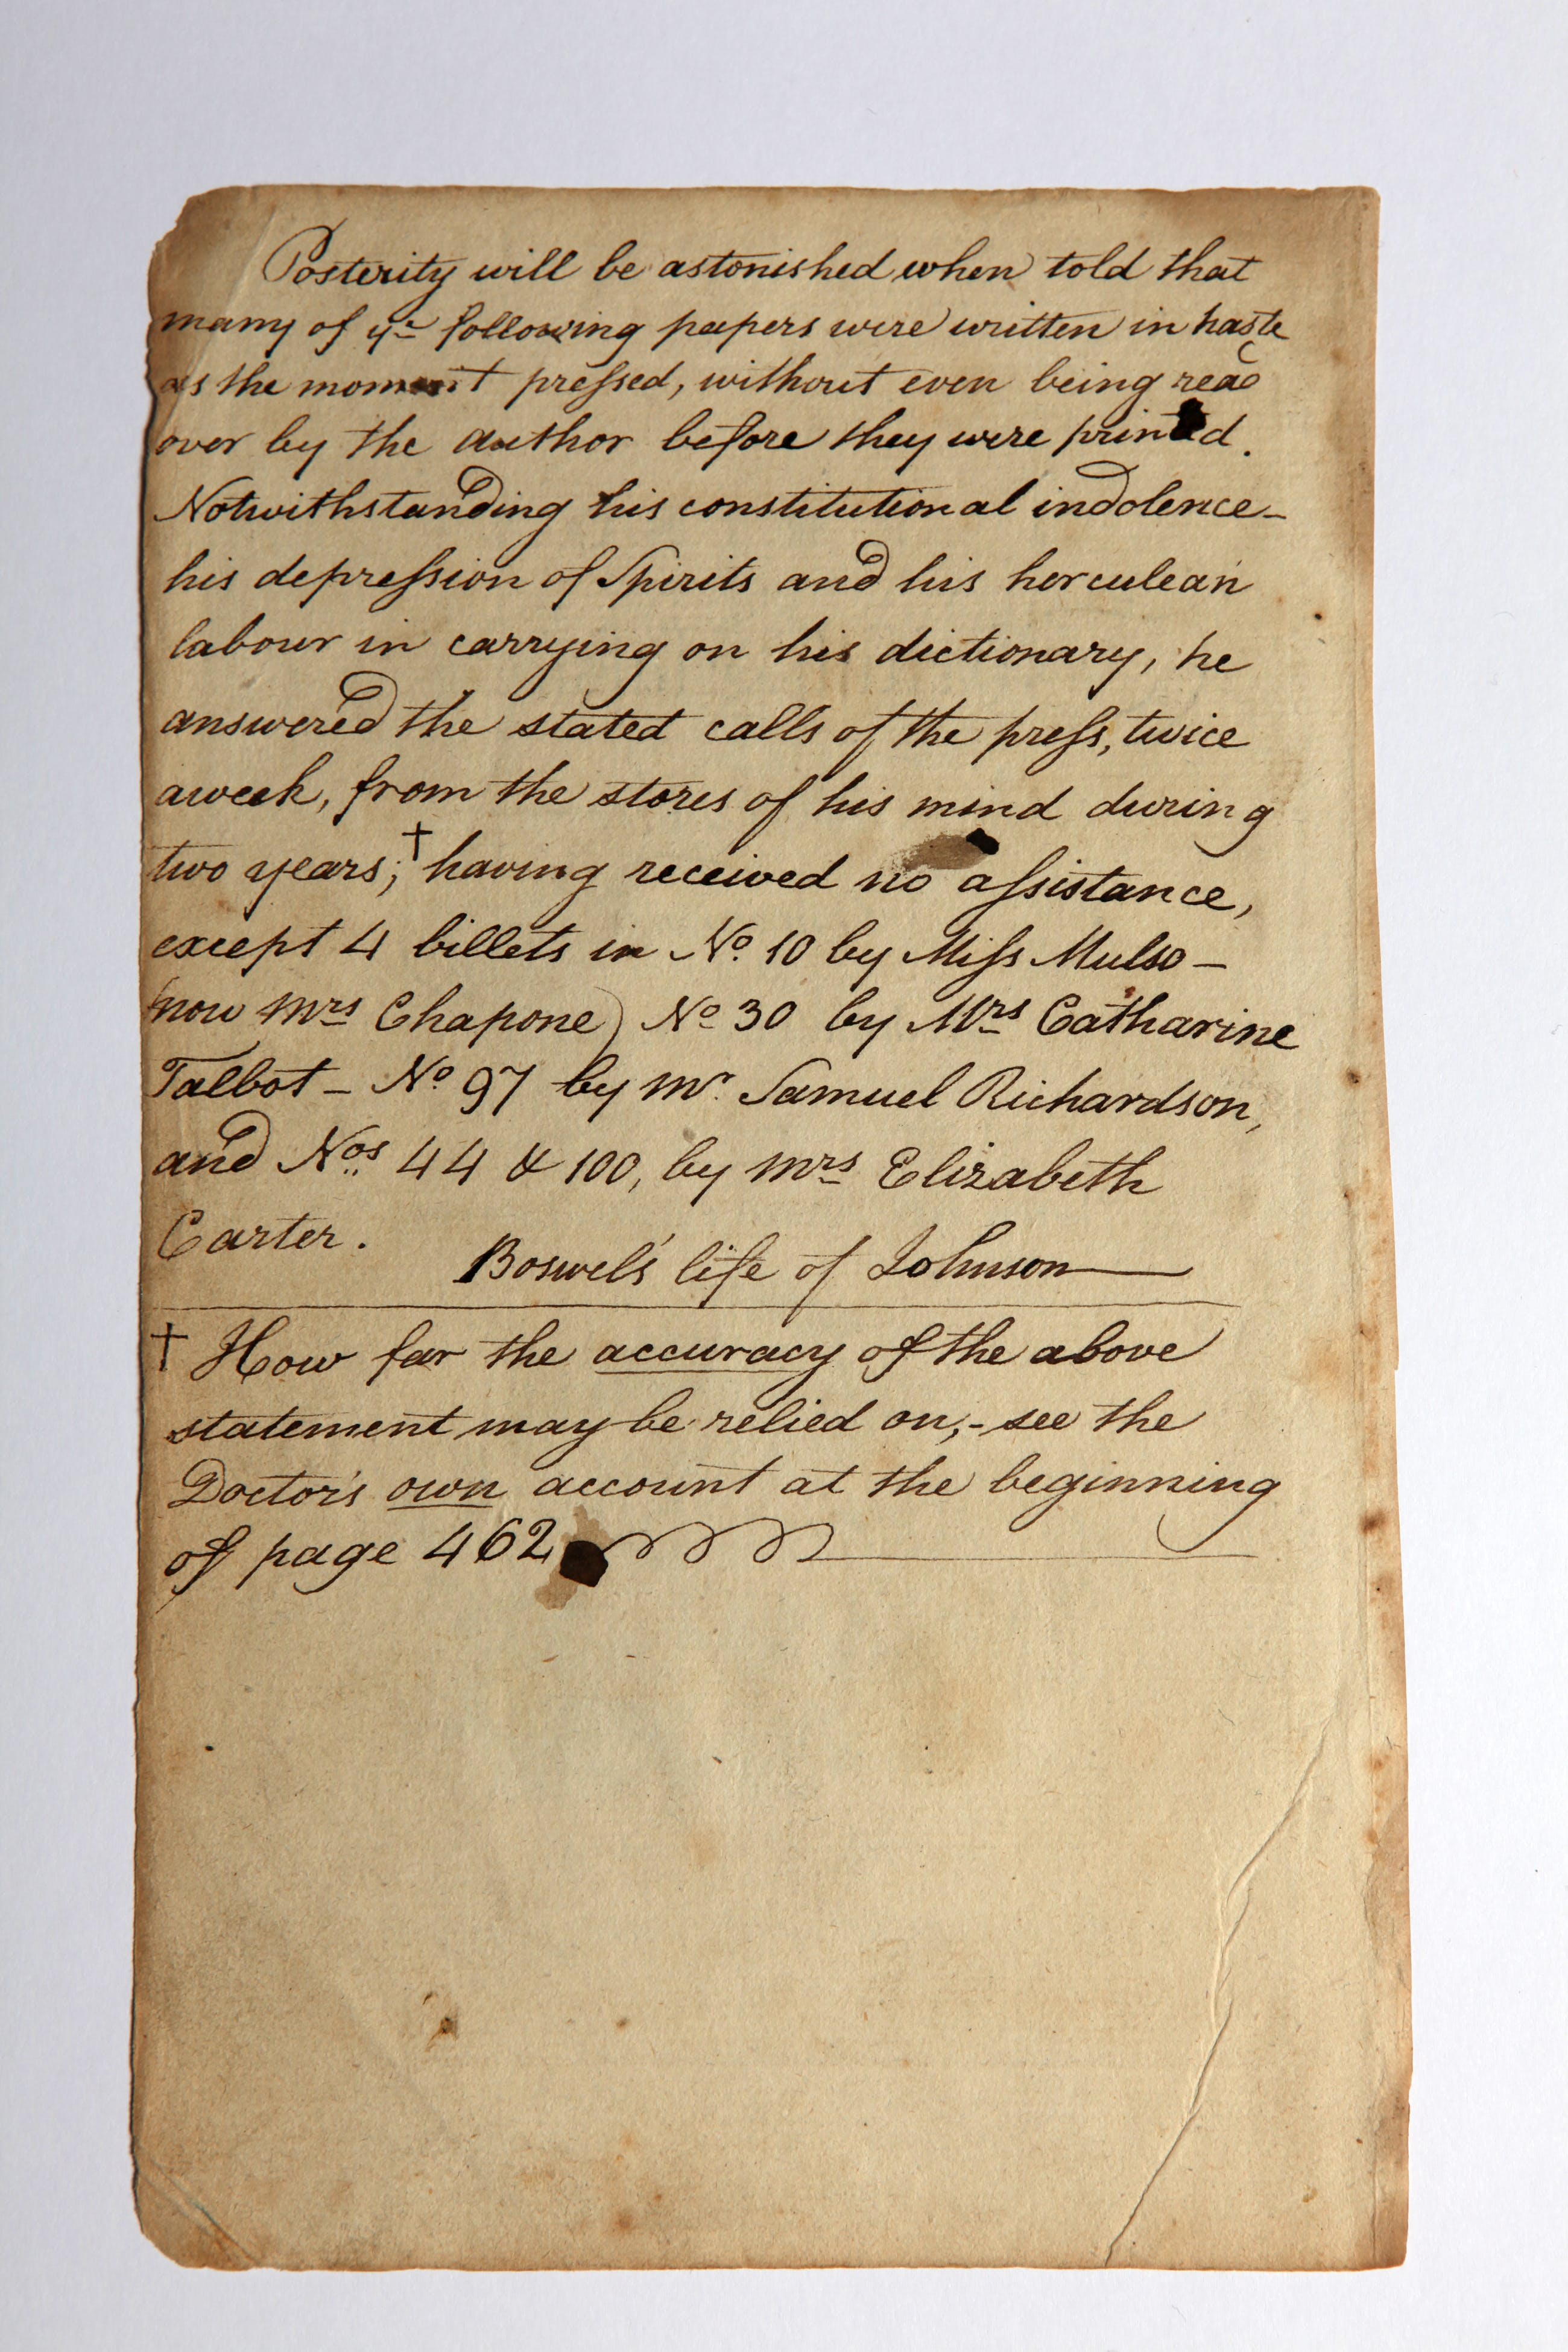 Posterity will be astonished when told that
many of yͤ following papers were written in haste
as the moment pressed, without even being read
over by the author before they were printed.
Notwithstanding his constitutional indolence –
his depression of Spirits and his herculean
labour in carrying on his dictionary, he
answered the stated calls of the press, twice
a week, from the stores of his mind during
two years;† having received no assistance,
except 4 billets in No. 10 by Miss Mulso –
(now Mrs Chapone) No 30 by Mrs Catharine
Talbot – No 97 by Mr. Samuel Richardson,
and Nos 44 & 100, by Mrs Elizabeth
Carter.
Boswel's life of Johnson
† How far the accuracy of the above
statement may be relied on, – see the
Doctor's own account at the beginning
of page 462